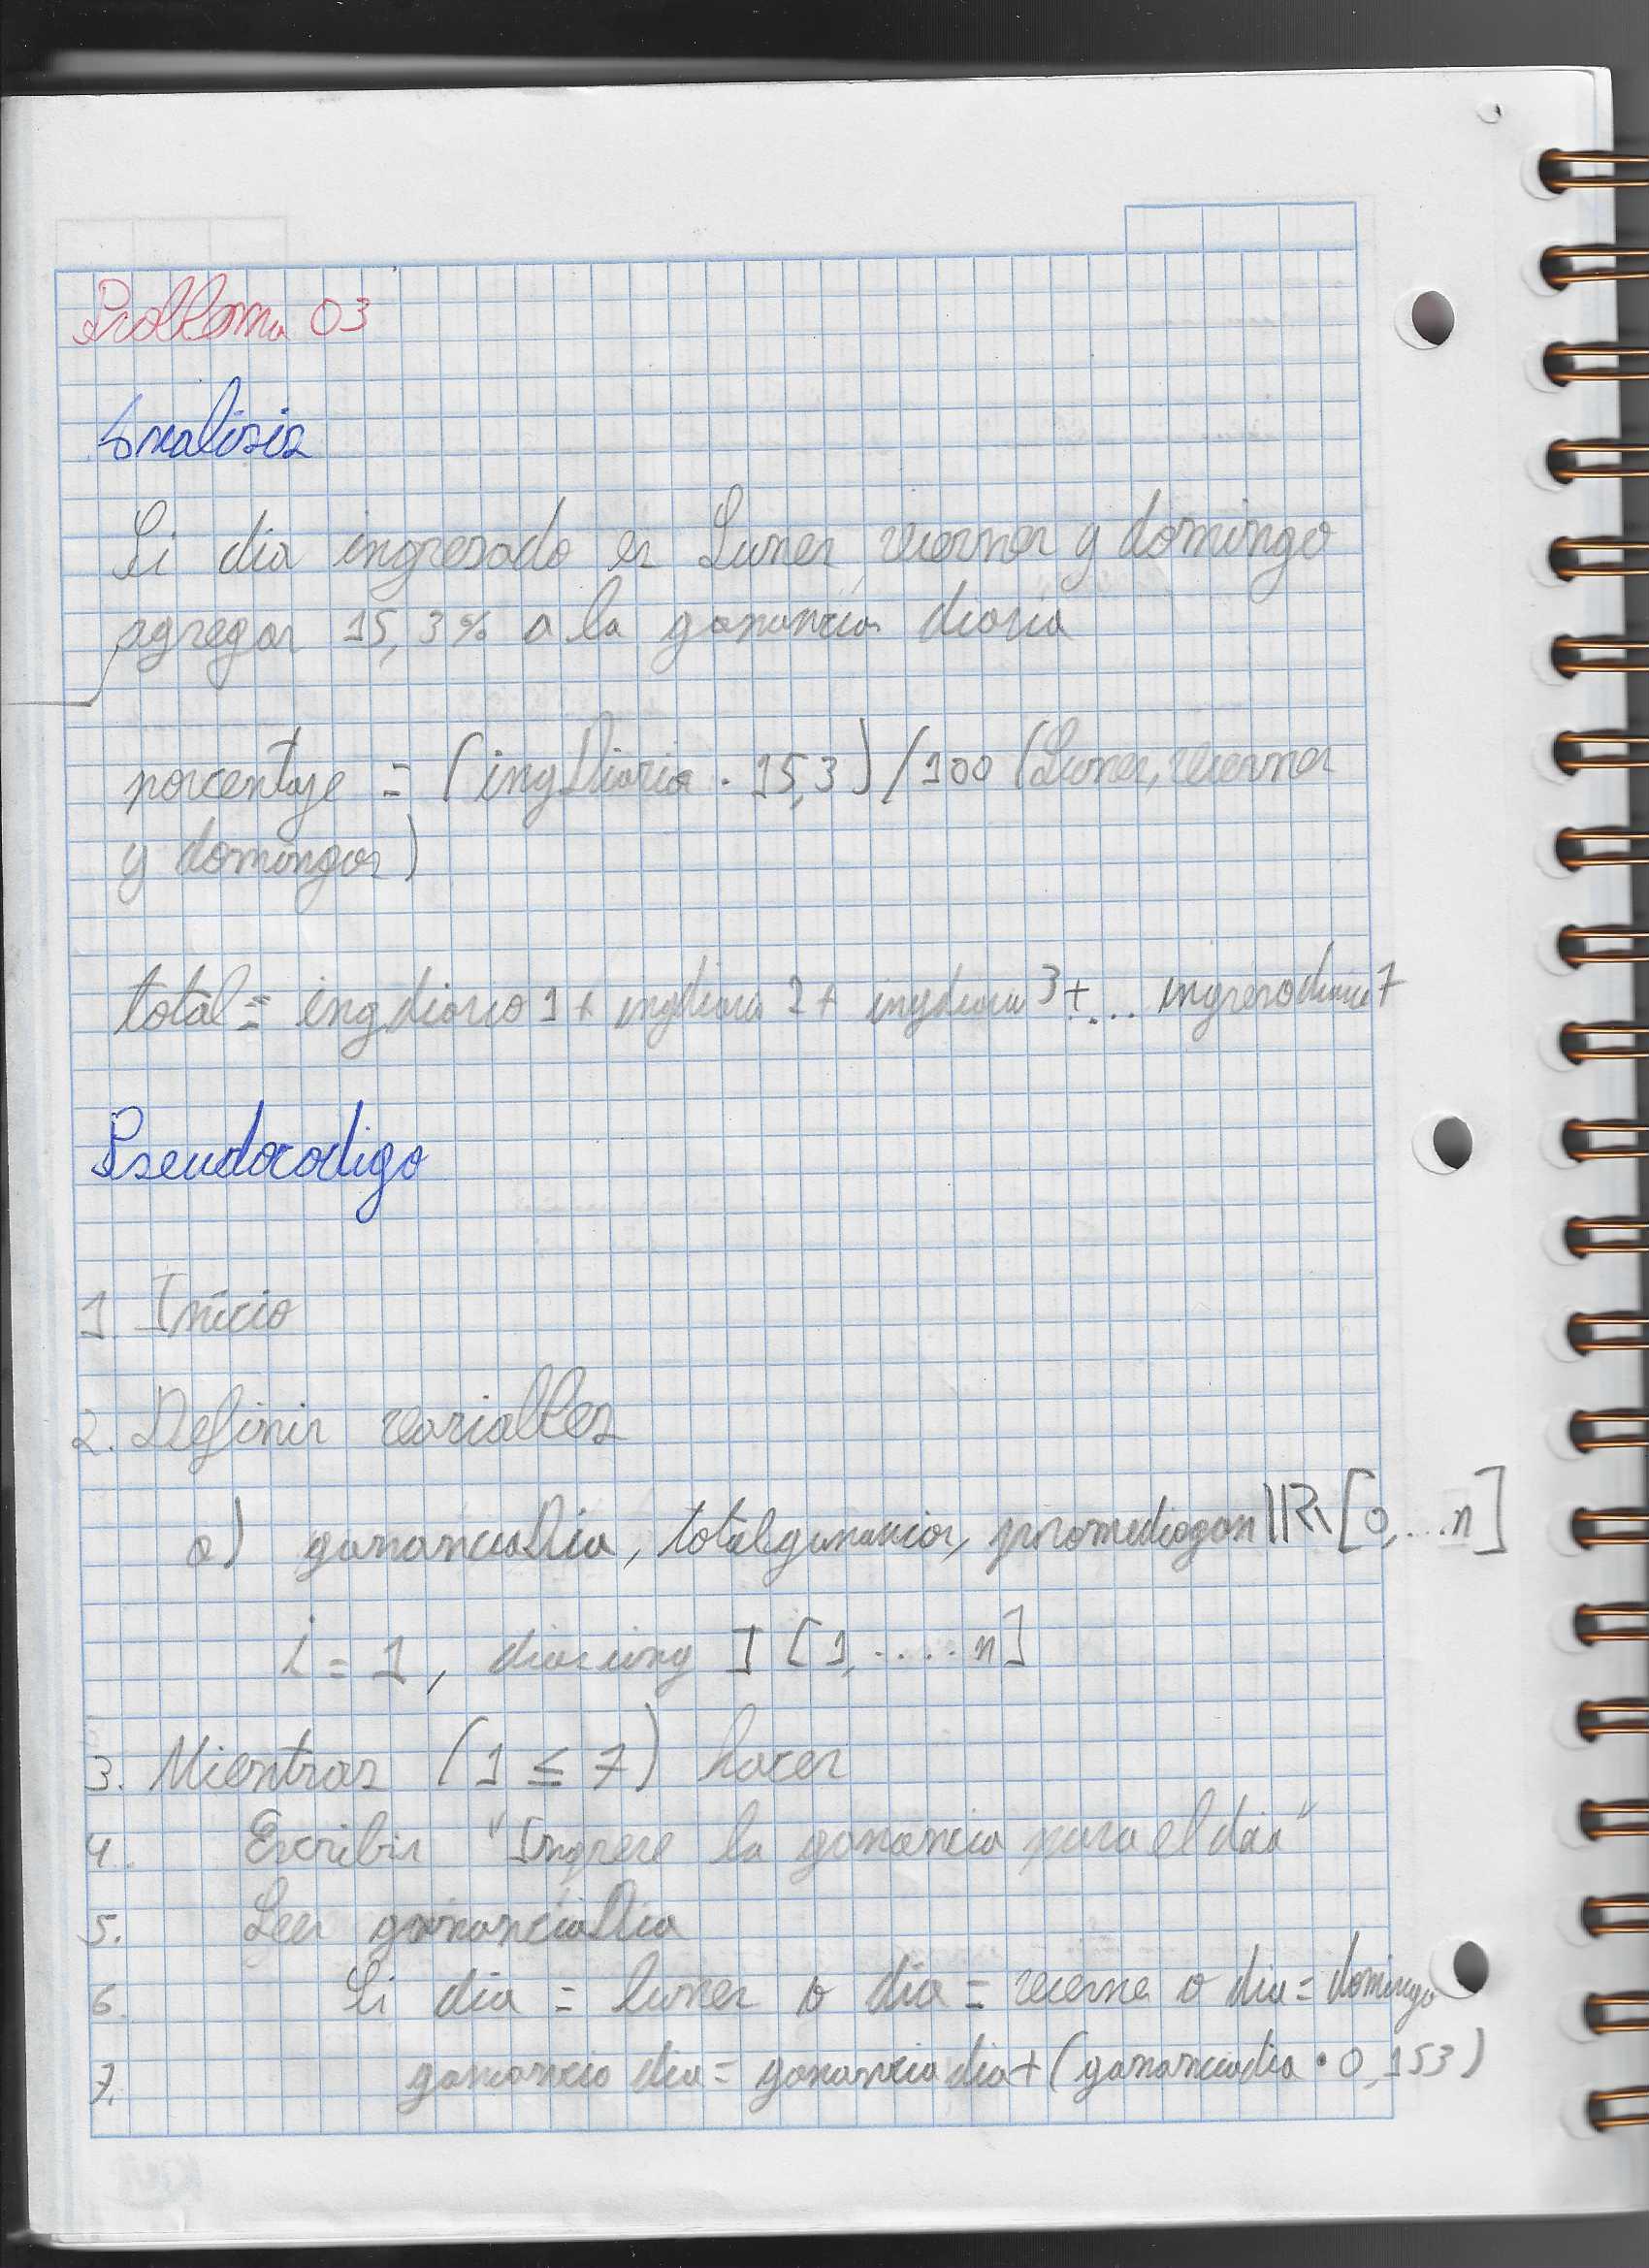 Problema 03
Analisis
Si dia ingresado es Lunes, viernes y domingo
agregar 15,3% a la ganancia diaria
porcentaje = (ingDiario . 15,3) / 100 (Lunes, viernes
y domingos)
total = ingdiario 1 + ingdiario 2 + ingdiario 3 + ... ingresodiario 7
Pseudocodigo
1. Inicio
2. Definir variables
a) gananciaDia, totalganancias, promediogan IR [0,...n]
i = 1, I [1,.....n]
3. Mientras (1 ≤ 7) hacer
4. Escribir "Ingrese la ganancia para el dia"
5. Leer gananciaDia
6. Si dia = lunes o dia = vierne o dia = domingo
7. ganancia dia = ganancia dia + (gananciadia • 0,153)